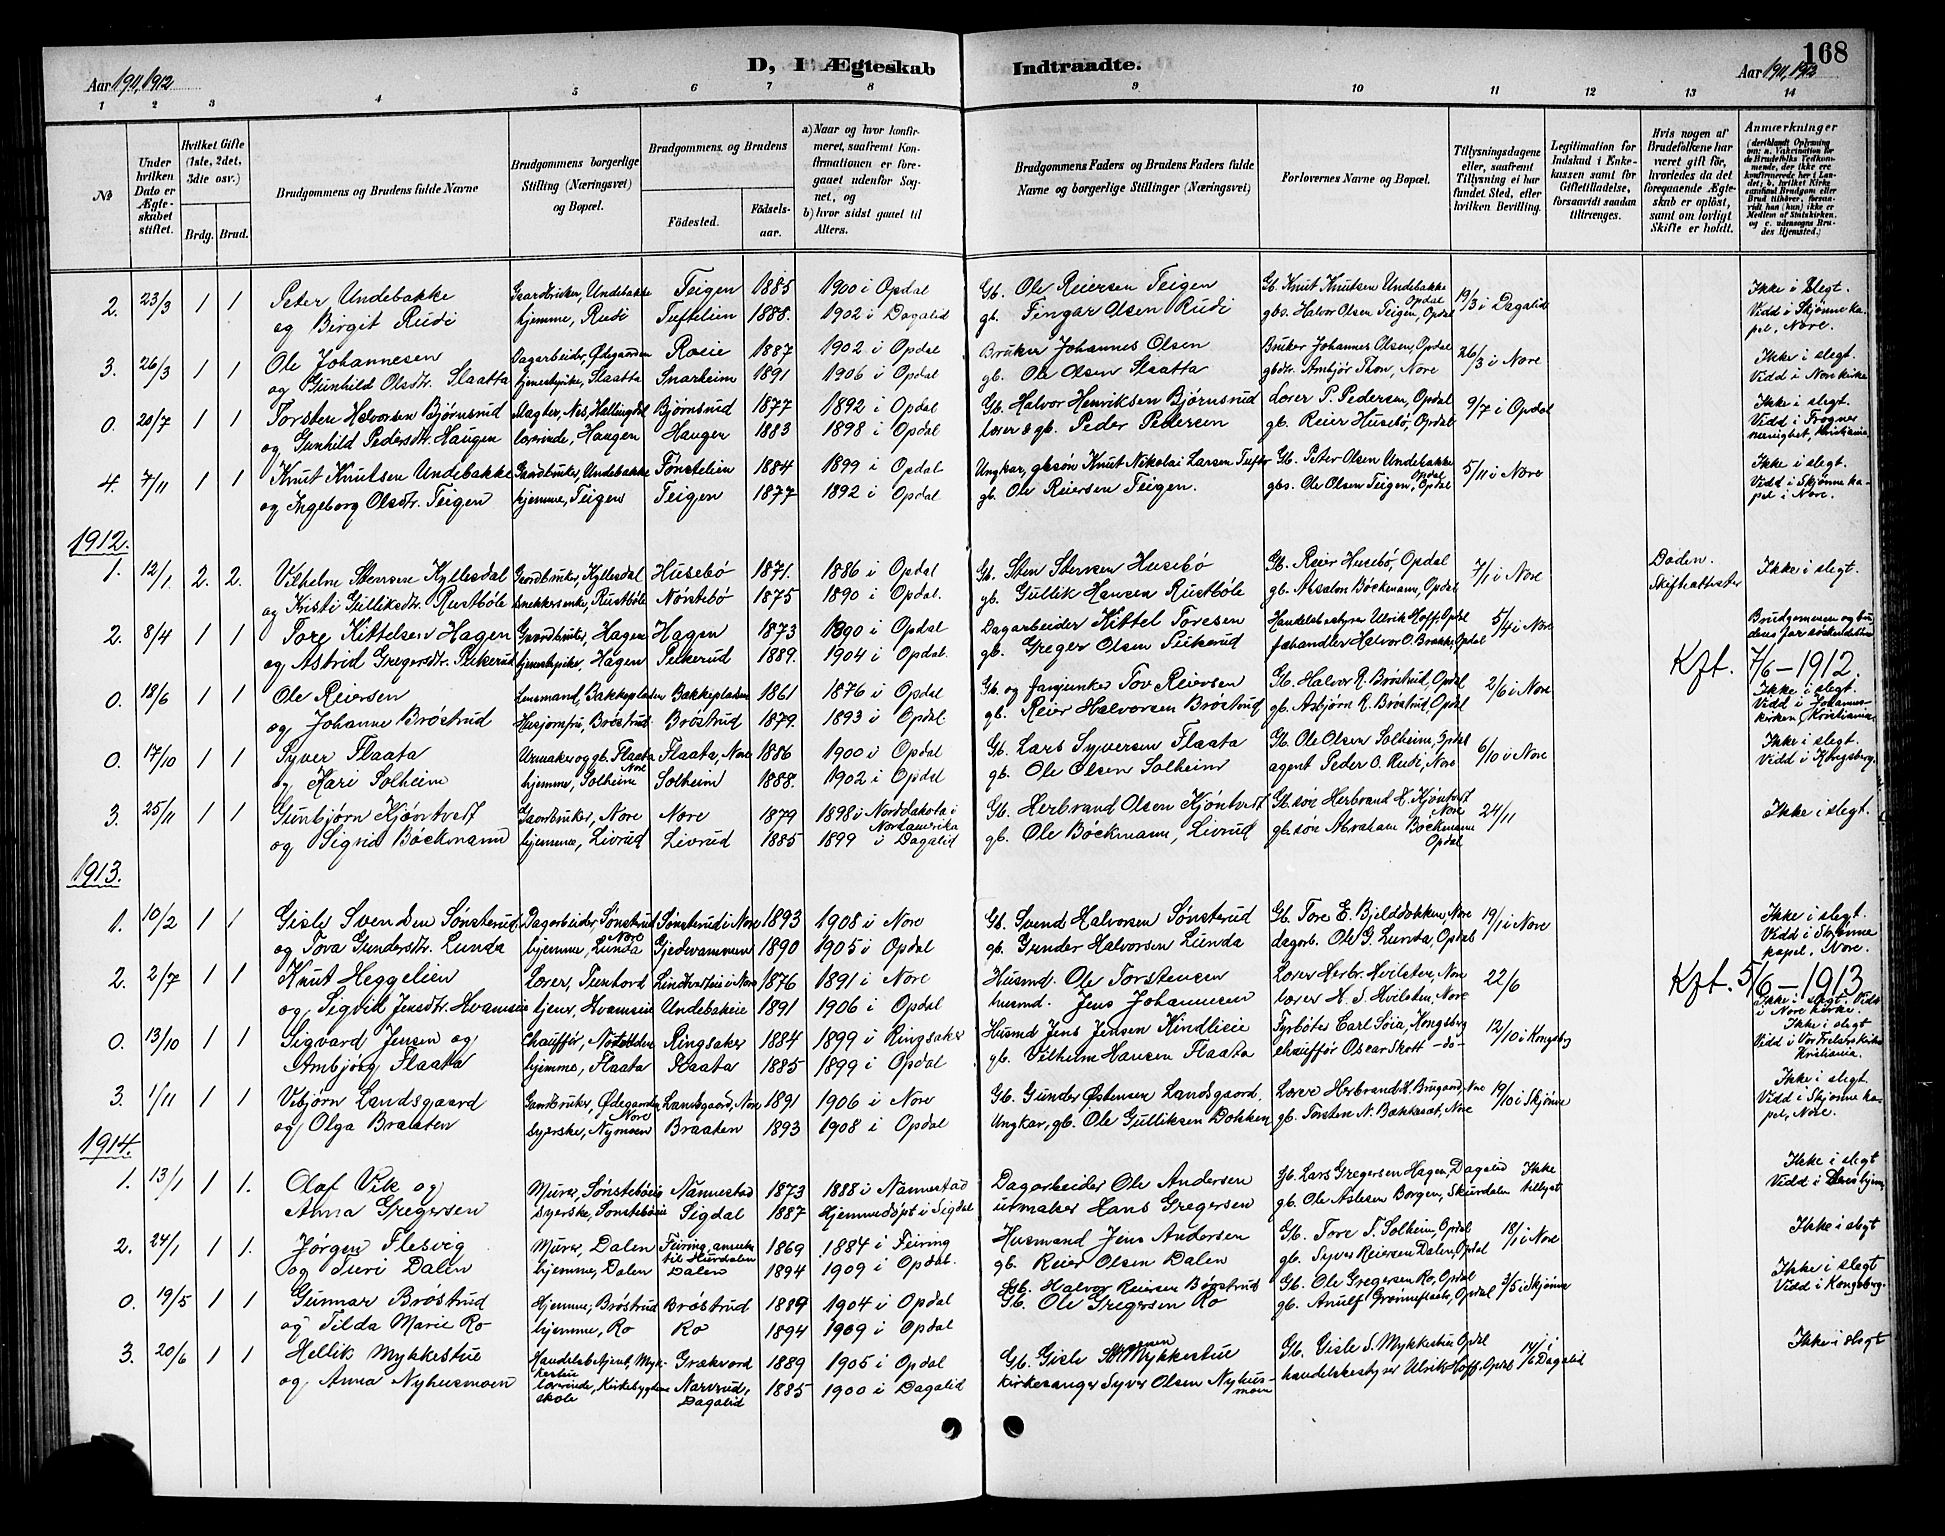 168
D, I Ægteskab Indtraadte.
Aar 1911, 1912 Aar 1911, 1912
1 2 3 4 5 6 7 8 9 10 11 12 13 14
No
Under hvilken Dato er Ægteskabet stiftet.
Hvilket Gifte (1ste, 2det, 3die osv.)
Brdg. Brud.
Brudgommens og Brudens fulde Navne
Brudgommens borgerlige Stilling (Næringsvei) og Bopæl.
Brudgommens og Brudens
Födested. Födselsaar.
a) Naar og hvor konfirmeret, saafremt Konfirmationen er foregaaet udenfor Sognet, og
b) hvor sidst gaaet til Alters.
Brudgommens Faders og Brudens Faders fulde Navne og borgerlige Stillinger (Næringsvei)
Forlovernes Navne og Bopæl.
Tillysningsdagene eller, saafremt Tillysning ei har fundet Sted, efter hvilken Bevilling.
Legitimation for Indskud i Enkekassen samt for Giftetilladelse, forsaavidt saadan tiltrænges.
Hvis nogen af Brudefolkene har været gift för, hvorledes da det foregaaende Ægteskab er oplöst, samt om lovligt Skifte er holdt.
Anmærkninger
2. 23/3 1 1 Peter Undebakke Gaardbruker, Undebakke Teigen 1885 1900 i Opdal Gb. Ole Reiersen Teigen Gb. Knut Knutsen Undebakke Opdal 19/3 i Dagalid Ikke i slegt.
og Birgit Rudi hjemme, Rudi Tuftelien 1888. 1902 i Dagalid gb. Fingar Olsen Rudi gbs. Halvor Olsen Teigen, Opdal Vidd i Skjönne kapel, Nore.
3. 26/3 1 1 Ole Johannesen Dagarbeider, Ødegaarden Roeie 1887 1902 i Opdal Bruker Johannes Olsen Bruker Johannes Olsen, Opdal 26/3 i Nore Ikke i slegt.
og Gunhild Olsdtr. Slaatta tjenestpike, Slaatta Snareim 1891 1906 i Opdal gb. Ole Olsen Slaatta gbdr. Ambjör Thon, Nore Vidd i Nore kirke
0. 20/7 1 1 Torsten Halvorsen Bjørnsrud Nes, Hallingdal Bjørnsrud 1877 1892 i Opdal Gb. Halvor Henriksen Bjørnsrud Lærer P. Pedersen, Opdal 9/7 i Opdal Ikke i slegt.
og Gunhild Pedersdtr. Haugen lærerinde, Haugen Haugen 1883 1898 i Opdal lærer & gb. Peder Pedersen gb. Reier Husebö, Opdal Vidd i Frogner menighet, Kristiania.
4. 7/11 1 1 Knut Knutsen Undebakke Gaardbruker, Undebakke Tönstelien 1884 1899 i Opdal Ungkar, gbsön Knut Nikolai Larsen Tufte Gb. Peter Olsen Undebakke Opdal 5/11 i Nore Ikke i slegt.
og Ingeborg Olsdtr. Teigen hjemme, Teigen Teigen 1877 1892 i Opdal gb. Ole Reiersen Teigen. gbs. Ole Olsen Teigen, Opdal Vidd i Skjönne kapel i Nore.
1912.
1. 12/1. 2. 2. Vilhelm Stensen Kyllesdal Gaardbruker, Kyllesdal Husebö 1871. 1886 i Opdal Gb. Sten Stensen Husebö Gb. Reier Husebö, Opdal 7/1 i Nore Döden. Ikke i slegt.
og Kristi Gulliksdtr. Rustböle snekkerenke, Rustböle Nörstebö 1875 1890 i Opdal. gb. Gullik Hansen Rustböle gb. Absalon Böckmann, Opdal Skifteattester
2. 8/4 1 1 Tore Kittelsen Hagen Gaardbruker, Hagen Hagen 1873 1890 i Opdal Dagarbeider Kittel Toresen Handelsbestyrer Ulrik Hoff, Opdal 5/4 i Nore Brudgommen og brudens
og Astrid Gregersdtr. Peikerud tjenestpike, Hagen Peikerud 1889. 1904 i Opdal. gb. Greger Olsen Peikerud fæhandler Halvor O. Brakke, Opdal Kzft. 7/6 – 1912.
0. 18/6 1 1 Ole Reiersen Lensmand, Bakkepladsen Bakkepladsen 1861 1876 i Opdal Gb. og fanjunker Tov Reiersen Gb. Halvor R. Bröstrud, Opdal 2/6 i Nore Ikke i slegt.
og Johanne Bröstrud Husjomfru, Bröstrud Bröstrud 1879. 1893 i Opdal. gb. Reier Halvorsen Bröstrud gb. Asbjörn R. Bröstrud, Opdal Vidd i Johanneskirken, Kristiania.
0. 17/10 1 1 Syver Flaata Urmaker og gb. Flaata Nore Flaata, Nore 1886 1900 i Opdal Gb. Lars Syversen Flaata Gb. Ole Olsen Solheim, Opdal 6/10 i Nore Ikke i slegt.
og Kari Solheim hjemme, Solheim Solheim 1888. 1902 i Opdal gb. Ole Olsen Solheim agent Peder O. Rude, Nore Vidd i Kongsberg.
3. 25/11 1 1 Gunbjörn Kjöntvedt Gaardbruker, Nore Nore 1879 1898 i Norddakota i Nordamerika Gb. Herbrand Olsen Kjöntvedt Gb. sön Herbrand H. Kjöntvedt Nore 24/11 Ikke i slegt.
og Sigrid Böckmann hjemme, Livrud Livrud 1885 1899 i Dagalid gb. Ole Böckmann, Livrud gb. sön Abraham Böckmann Opdal
1913.
1. 10/2 1 1 Gisle Svendsen Sönsterud Dagarbeider, Sönsterud Nore Sönsterud i Nore 1893 1908 i Nore Gb. Svend Halvorsen Sönsterud Gb. Tore E. Bjelddokken, Nore 19/1 i Nore Ikke i slegt.
og Tova Gundersdtr. Lunda hjemme, Lunda Gjedvammen 1890 1905 i Opdal gb. Gunder Halvorsen Lunda dagarb. Ole G. Lunda, Opdal Vidd i Skjönne kapel, Nore.
2. 2/7 1 1 Knut Heggelien Lærer, 1876 1891 i Nore Husmd. Ole Torstensen Lærer Herbr. Hvilsten, Nore 22/6 Kzft. 5/6 – 1913
og Sigrid Jensdtr. Hvamseie hjem, Hvamseie Undebakeie 1891 1906 i Opdal husmd. Jens Johannesen lærer H. S. Hvilsten, Nore Ikke i slegt. Vidd i Nore kirke.
0. 13/10 1 1 Sigvard Jensen og Chauffør, Notodden Ringsaker 1884 1899 i Ringsaker Husmd Jens Jensen Kindlieie Fyrböter Carl Soia, Kongsberg 12/10 i Kongsbg Ikke i slegt
Ambjörg Flaata hjemme, Flaata Flaata 1885 1899 i Opdal gb. Vilhelm Hansen Flaata chauffør Oscar Skott – do – Vidd i Vor Frelsers kirke Kristiania.
3. 1/11 1 1 Vebjörn Landsgaard Gaardbruker, Ødegaarden Nore Landsgaard, Nore 1891 1906 i Nore Gb. Gunder Østensen Landsgaard, Lærer Herbrand H. Brugaard, Nore 19/10 i Skjönne Ikke i slegt.
og Olga Braaten syerske, Nymoen Braaten 1893 1908 i Opdal Ungkar, gb. Ole Gulliksen Dokken gb. Torsten N. Bakkesat, Nore Vidd i Skjönne kapel, Nore.
1914.
1. 13/1 1 1. Olaf Vik og Murer, Sönsteböeie Nannestad 1873 1888 i Nannestad Dagarbeider Ole Andersen Gb. Lars Gregersen Hagen, Dagalid Ikke tillyst Ikke i slegt
Anna Gregersen syerske, Sönsteböeie Sigdal 1887 Hjemmedöpt i Sigdal urmaker Hans Gregersen gb. Ole Aslesen Borgen, Skurdalen Vidd i
2. 24/1 1 1. Jörgen Flesvig Murer, Dalen Feiring, ansöke til Hurdalen 1869 1884 i Feiring Husmand Jens Andersen Gb. Tore T. Solheim, Opdal 18/1 i Nore Ikke i slegt
og Turi Dalen hjemme, Dalen Dalen 1894 1909 i Opdal. gb. Reier Olsen Dalen gb. Syver Reiersen Dalen, Opdal
0. 19/5 1 1 Gunnar Bröstrud Hjemme, Bröstrud Bröstrud 1889 1904 i Opdal Gb. Halvor Reiersen Bröstrud Gb. Ole Gregersen Ro, Opdal 3/5 i Skjönne Ikke i slegt
og Tilda Marie Ro hjemme, Ro Ro 1894 1909 i Opdal Gb. Ole Gregersen Ro gb. Anulf Grönneflaate, Opdal Vidd i Kongsberg.
3. 20/6 1 1 Hellik Mykkestue Handelsbetjent, Mykkestue Grækvord 1889 1905 i Opdal Gb. Gisle Mykkestue Gb. Gisle S. Mykkestue Opdal 14/6 i Dagalid Ikke i slegt
og Anna Nyhusmoen lærerinde, Kirkebygdens skole Narvrud, Dagalid 1885 1900 i Dagalid kirkesanger Syver Olsen Nyhusmoen handelsbestyrer Ulrik Hoff, Opdal